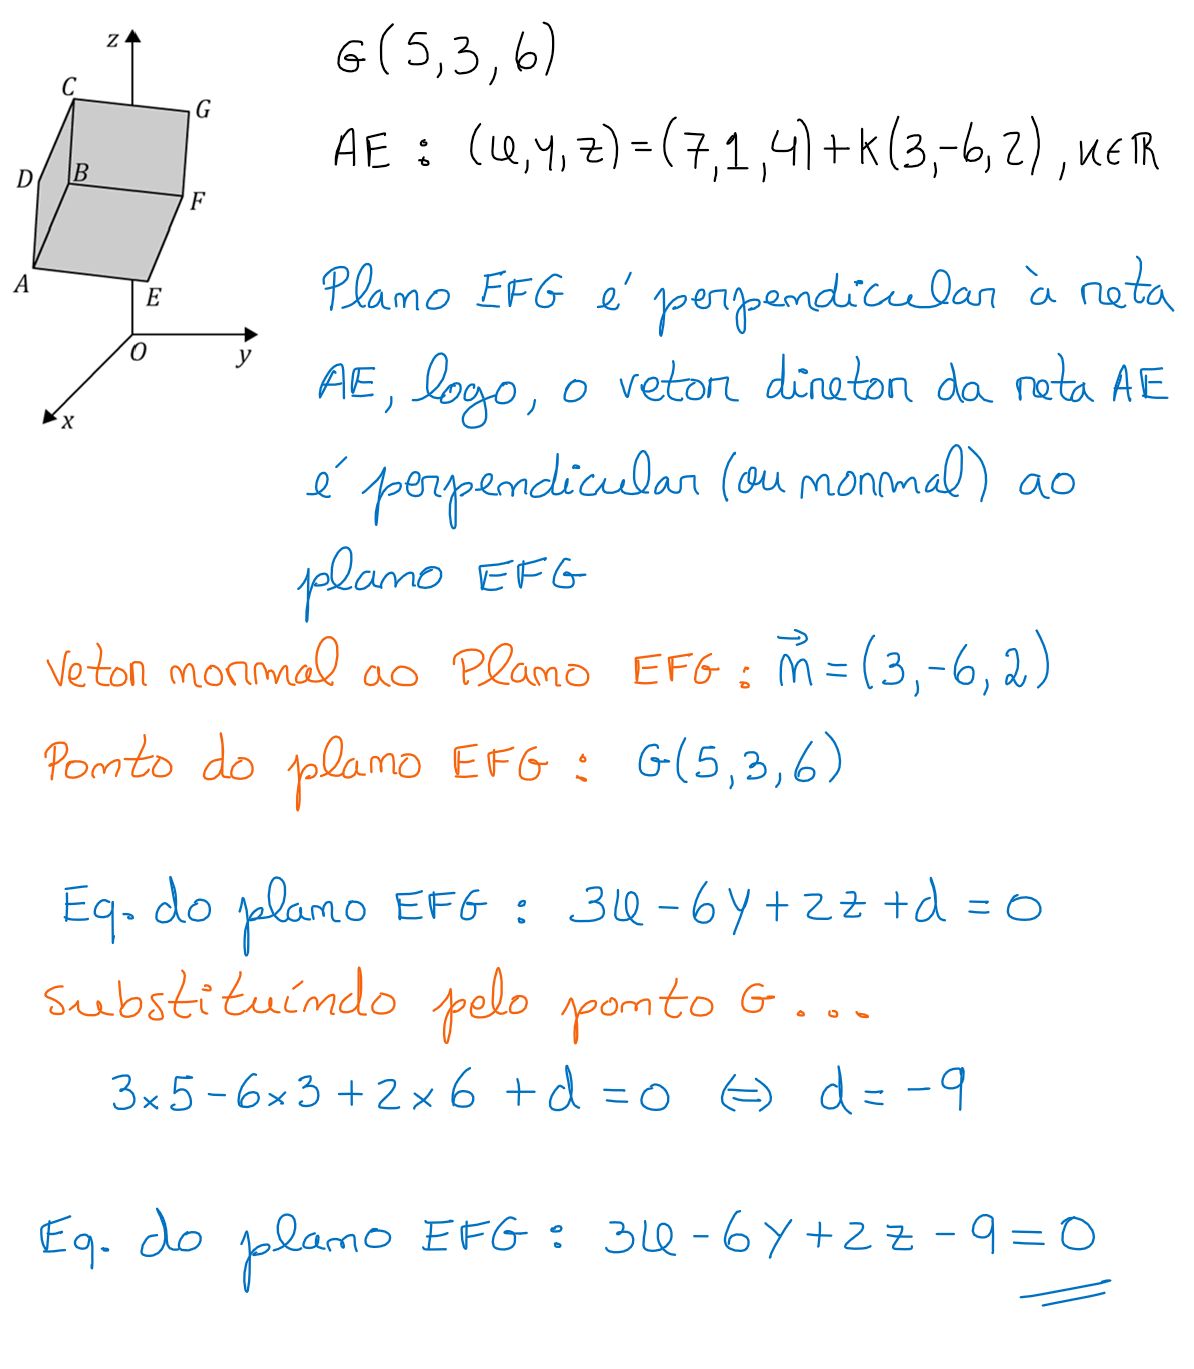 z
C
G
D
B
F
A
E
O
y
x
G(5,3,6)
AE : (x,y,z)=(7,1,4)+K(3,-6,2), K∈ℝ
Plano EFG é perpendicular à reta
AE, logo, o vetor diretor da reta AE
é perpendicular (ou normal) ao
plano EFG
Vetor normal ao Plano EFG : n⃗ = (3,-6,2)
Ponto do plano EFG : G(5,3,6)
Eq. do plano EFG : 3x - 6y + 2z + d = 0
Substituíndo pelo ponto G ...
3×5 - 6×3 + 2×6 + d = 0 ⇔ d = -9
Eq. do plano EFG : 3x - 6y + 2z - 9 = 0